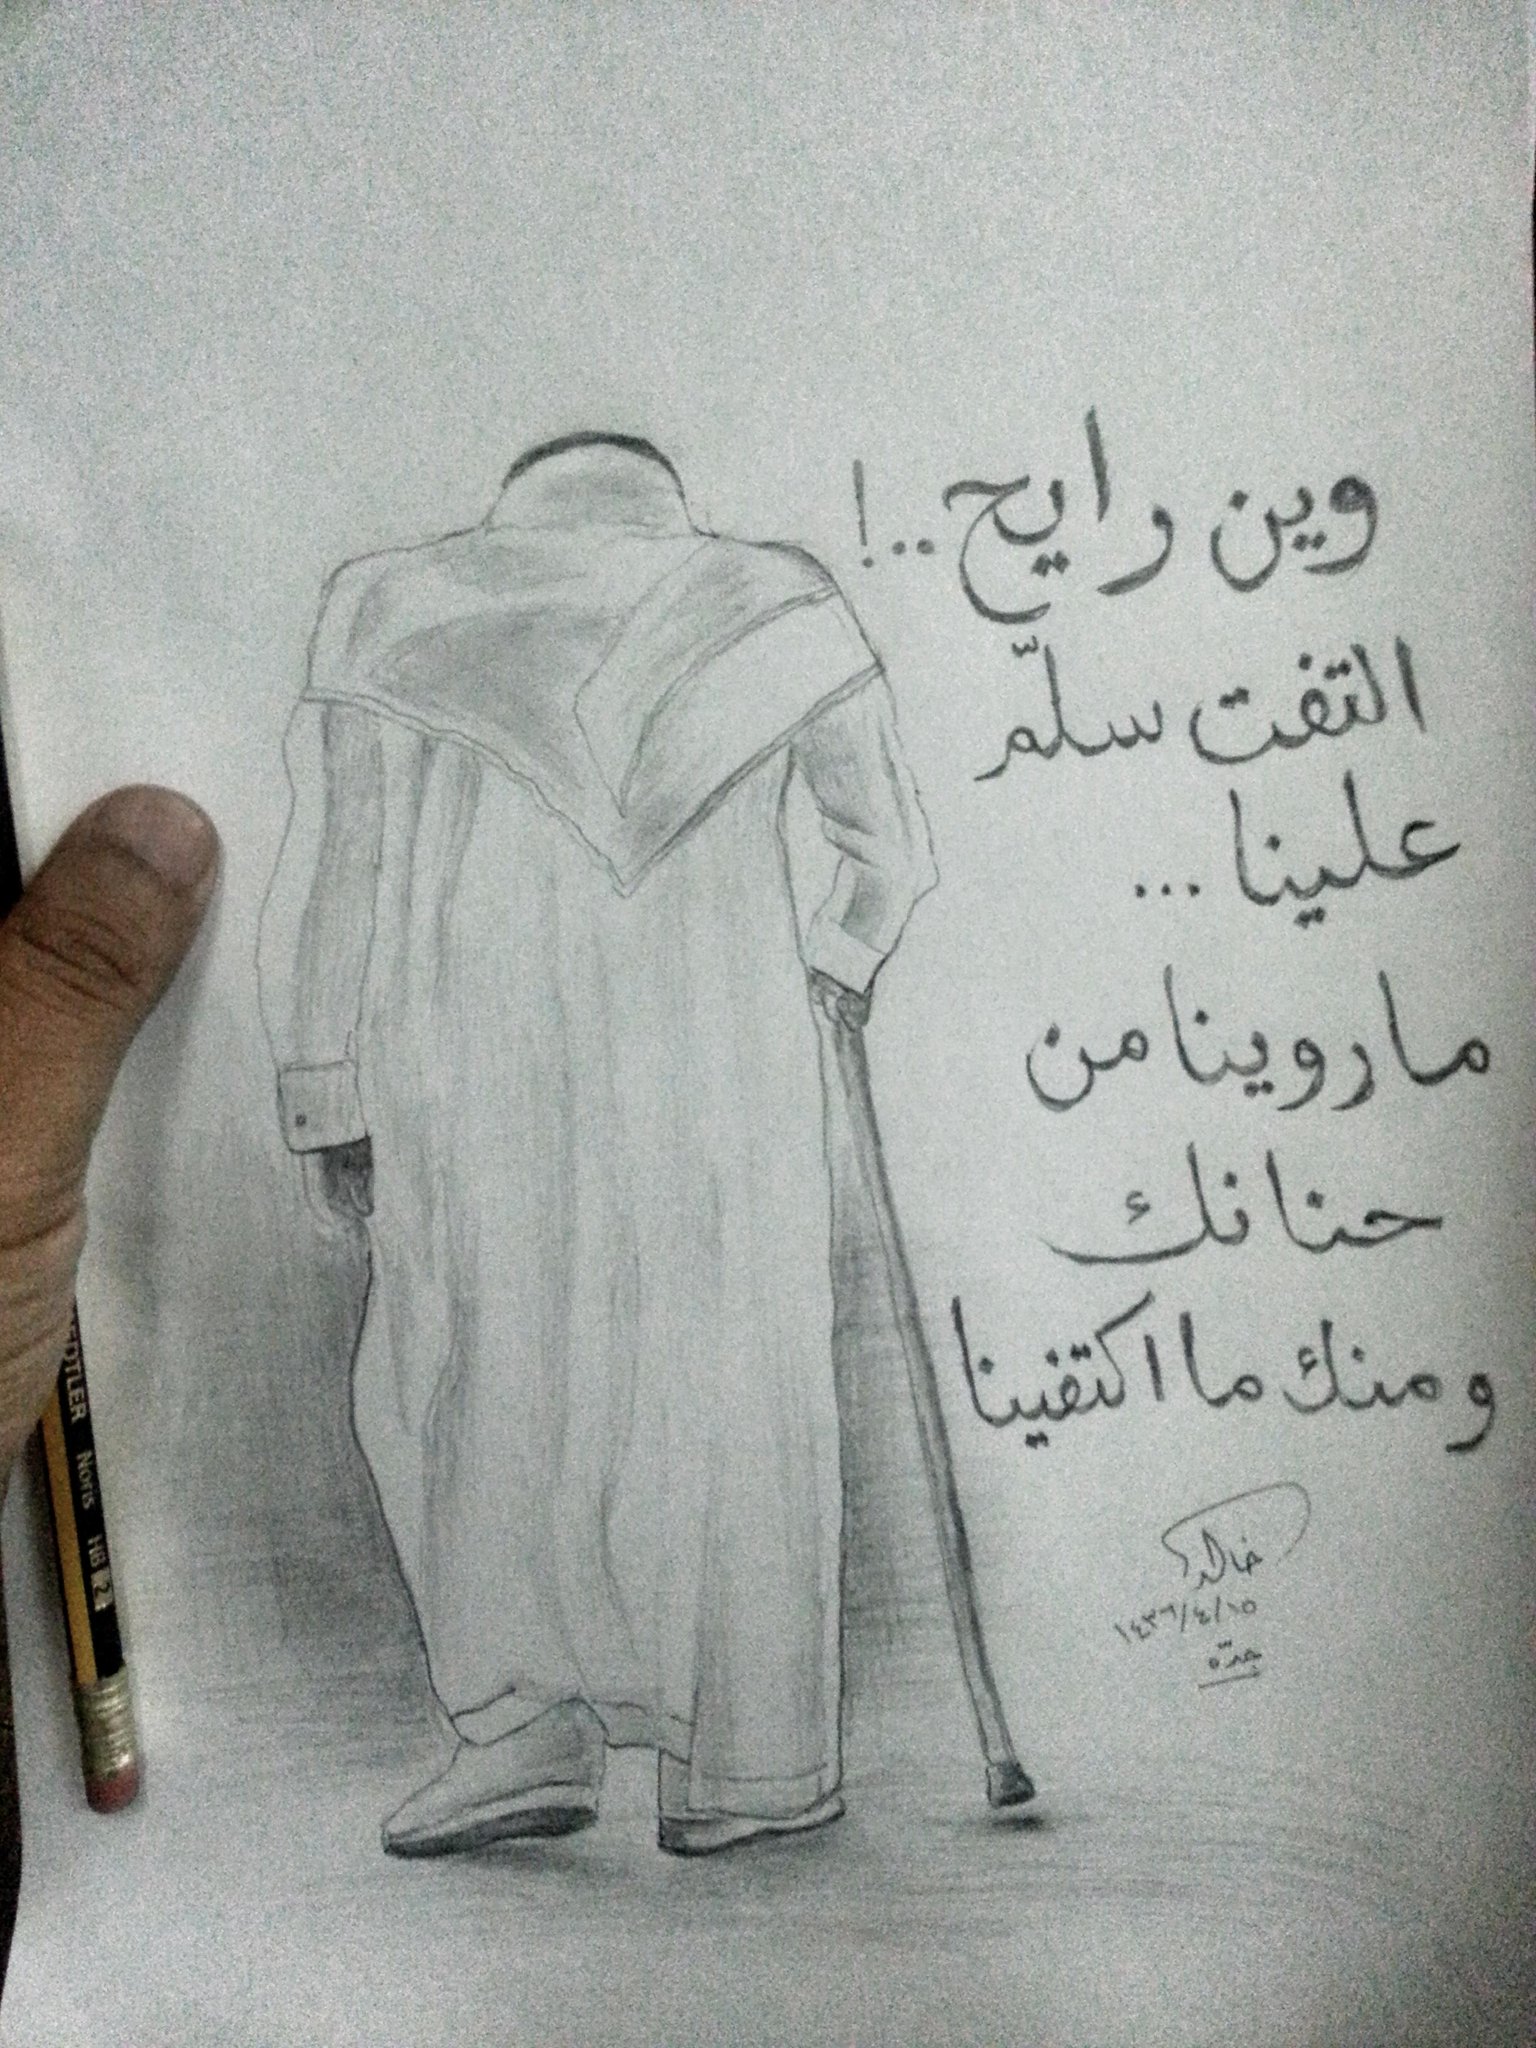 وين رايح..!
التفت سلّم
علينا ...
ما روينا من
حنانك
ومنك ما اكتفينا
خالد
١٤٣٦/٤/١٥
جدة
Noris HB 2